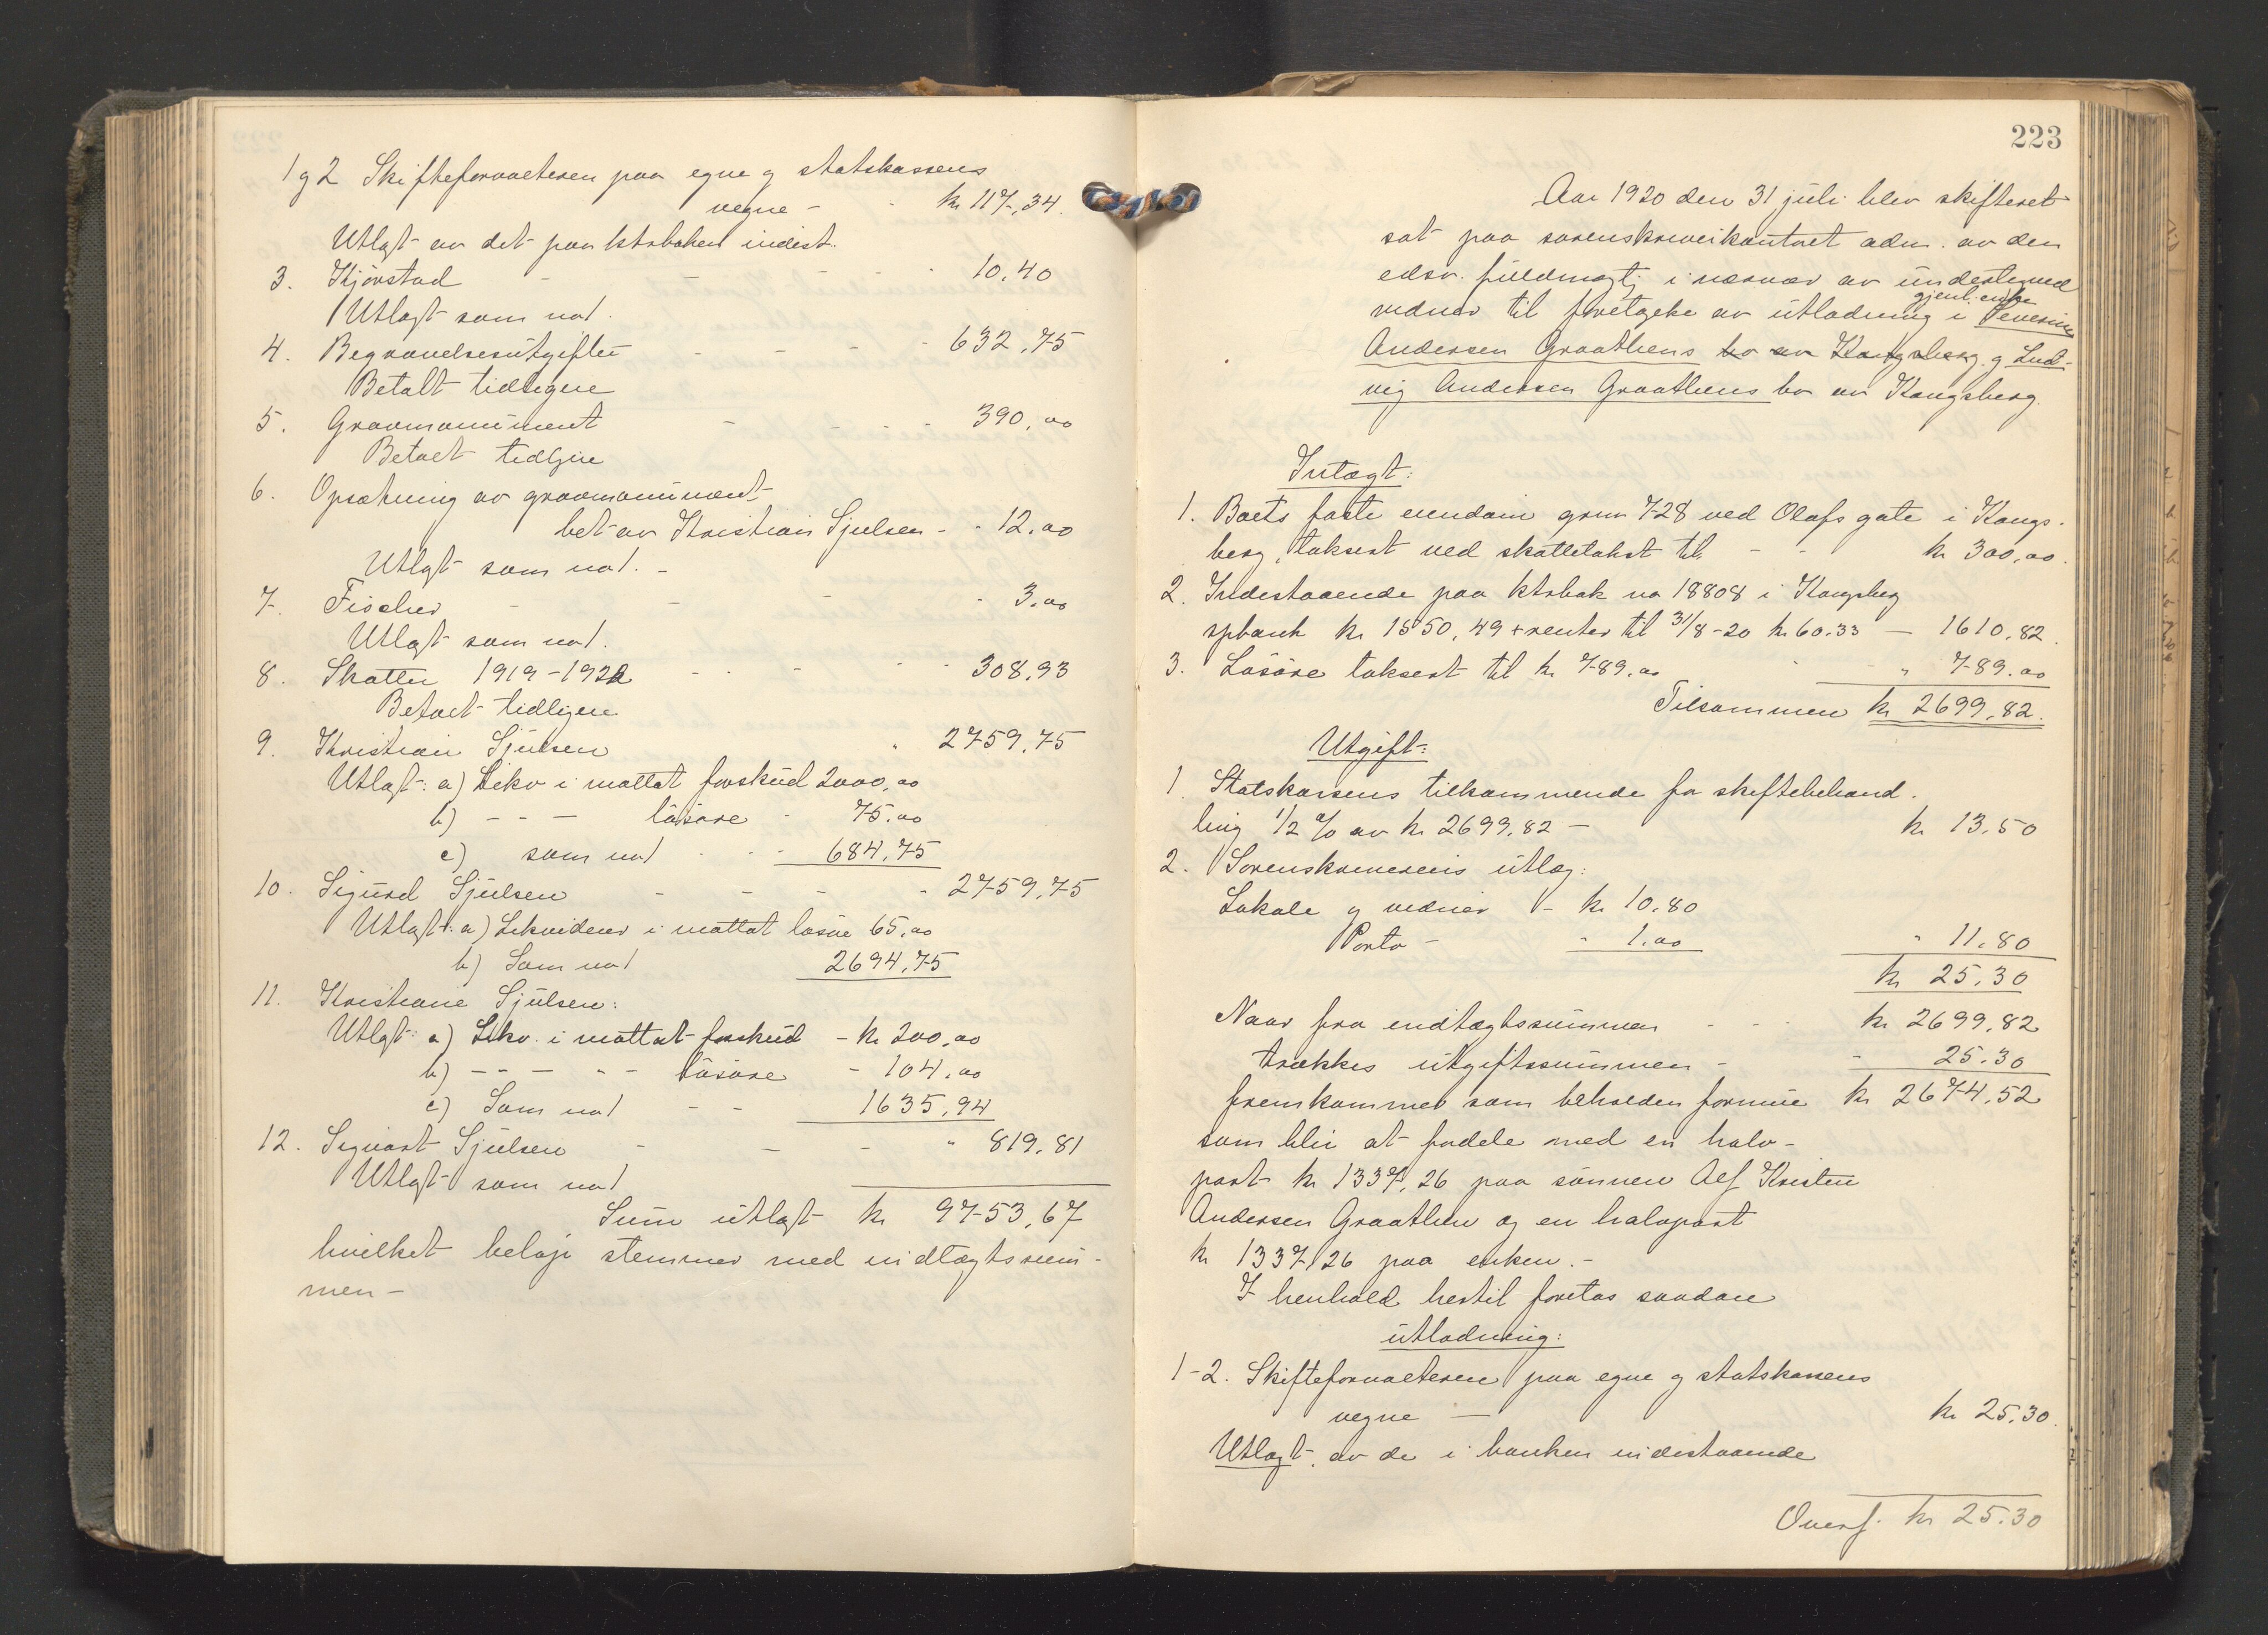 1 g 2 Skifteforvalteren paa egne g statskassens
vegne - - kr 117,34.
Utlagt av det paa ktrboken indest.
3. Kjørstad - - - - 10,40
Utlagt som no 1.
4. Begravelsesutgifter - - - - 632,75
Betalt tidligere
5. Gravmonument - - - - 390,00
Betalt tidligere
6. Opsætning av gravmonument
bet av Kristian Sjulsen - - 12,00
Utlagt som no 1. -
7. Fischer - - - - 3,00
Utlagt som no 1.
8. Skatter 1919-1920 - - - - 308,93
Betalt tidligere
9. Kristian Sjulsen " 2759,75
Utlagt: a) Likv i mottat forskud 2000,00
b) - - - løsøre - 75,00
c) som no 1 - - - 684,75
10. Sigurd Sjulsen - - - - 2759,75
Utlagt: a) Likvideres i mottat løsøre 65,00
b) Som no 1 2694,75
11. Kristiane Sjulsen:
Utlagt: a) Likv. i mottat forskud - kr 200,00
b) - - - - - løsøre - 104,00
c) Som no 1 - - 1635,94
12. Sigvart Sjulsen - - - " 819,81
Utlagt som no 1
Sum utlagt kr 9753,67
hvilket beløp stemmer med indtægtssum-
men -
223
Aar 1920 den 31 juli blev skifteret
sat paa sorenskriverkontoret adm. av den
edsv. fuldmægtig i nærvær av undertegned
vidner til foretagelse av utlodning i gjenl. enke Severine
Andersen Graathens bo av Kongsberg g Lud-
vig Andersen Graathens bo av Kongsberg.
Intægt:
1. Boets faste eiendom grnr 728 ved Olafs gate i Kongs-
berg, taksert ved skattetakst til - - kr 300,00.
2. Indestaaende paa ktrbok no 18808 i Kongsberg
spbank kr 1550,49 + renter til 31/8-20 kr 60.33 — 1610,82.
3. Løsøre taksert til kr 789.00 " 789.00
Tilsammen kr 2699,82.
Utgift:
1. Statskassens tilkommende for skiftebehand-
ling 1/2 % av kr 2699,82 - kr 13,50
2. Sorenskriverens utlæg:
Lokale g vidner - kr 10,80
Porto - " 1.00 " 11,80
kr 25,30
Naar fra indtægtssummen - - - kr 2699,82
trækkes utgiftssummen - - 25.30
fremkommer som beholden formue kr 2674,52
som blir at fordele med en halv-
part kr 1337,26 paa sønnen Alf Kristen
Andersen Graathen og en halvpart
kr 1337,26 paa enken. -
I henhold hertil foretas saadan
utlodning:
1-2. Skifteforvalteren paa egne g statskassens
vegne — kr 25,30.
Utlagt. av de i banken indestaaende
Overf. kr 25.30